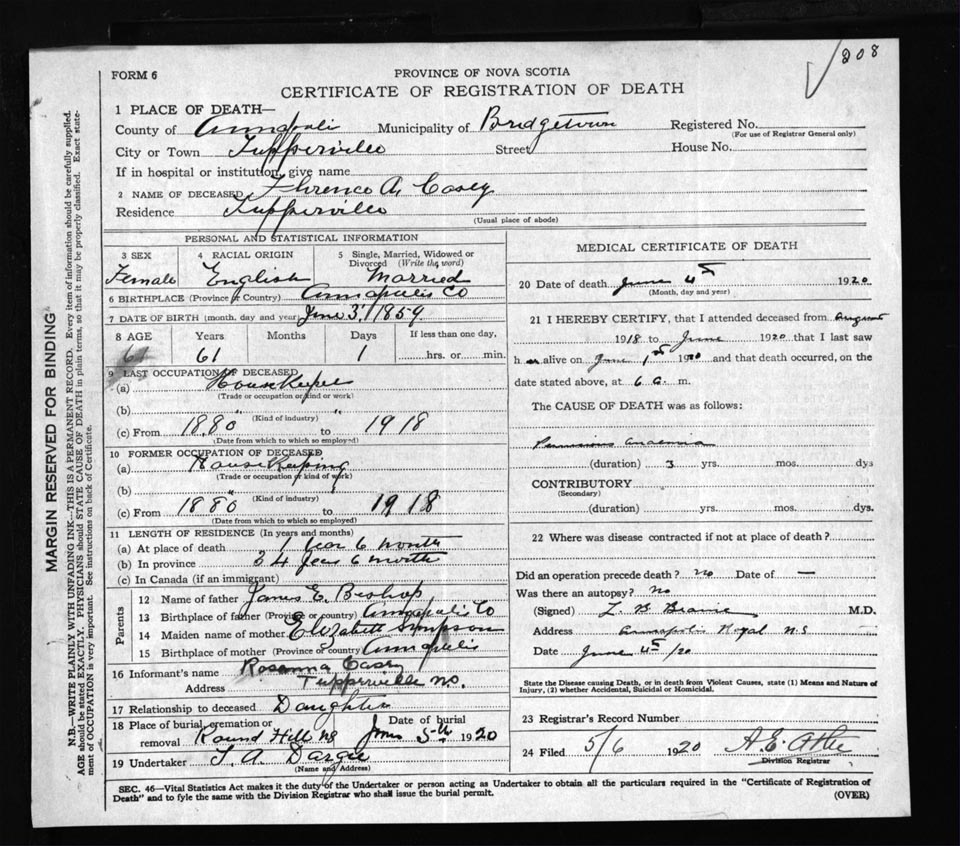 208
FORM 6
PROVINCE OF NOVA SCOTIA
CERTIFICATE OF REGISTRATION OF DEATH
1 PLACE OF DEATH—
County of Annapoli Municipality of Bridgetown Registered No.
(For use of Registrar General only)
City or Town Tupperville Street House No.
If in hospital or institution, give name
2 NAME OF DECEASED Florence A. Casey
Residence Tupperville
(Usual place of abode)
PERSONAL AND STATISTICAL INFORMATION
3 SEX 4 RACIAL ORIGIN 5 Single, Married, Widowed or Divorced (Write the word)
Female English Married
6 BIRTHPLACE (Province or Country) Annapolis Co
7 DATE OF BIRTH (month, day and year) June 3, 1859
8 AGE Years Months Days If less than one day,
61 61 1 hrs. or min.
9 LAST OCCUPATION OF DECEASED
(a) Housekeeper
(Trade or occupation or kind or work)
(b) "
(Kind of industry)
(c) From 1880 to 1918
(Date from which to which so employed)
10 FORMER OCCUPATION OF DECEASED
(a) Housekeeping
(Trade or occupation or kind of work)
(b) "
(Kind of industry)
(c) From 1880 to 1918
(Date from which to which so employed)
11 LENGTH OF RESIDENCE (In years and months)
(a) At place of death 1 year 6 month
(b) In province 34 years 6 month
(c) In Canada (if an immigrant)
Parents
12 Name of father James E. Bishop
13 Birthplace of father (Province or country) Annapolis Co
14 Maiden name of mother Elizabeth Simpson
15 Birthplace of mother (Province or Country) Annapolis
16 Informant's name Rosanna Casey
Address Tupperville N.S.
17 Relationship to deceased Daughter
18 Place of burial, cremation or removal Round Hill NS Date of burial June 5th 1920
19 Undertaker
(Name and Address)
MEDICAL CERTIFICATE OF DEATH
20 Date of death June 4th 1920
(Month, day and year)
21 I HEREBY CERTIFY, that I attended deceased from August
1918 to June 1920 that I last saw
h er alive on June 1st 1920 and that death occurred, on the
date stated above, at 6 a. m.
The CAUSE OF DEATH was as follows:
Pernicious anaemia
(duration) 3 yrs. mos. dys
CONTRIBUTORY
(Secondary)
(duration) yrs. mos. dys.
22 Where was disease contracted if not at place of death?
Did an operation precede death? no Date of —
Was there an autopsy? No
(Signed) L. B. M.D.
Address Annapolis Royal N.S
Date June 4th /20
State the Disease causing Death, or in death from Violent Causes, state (1) Means and Nature of
Injury, (2) whether Accidental, Suicidal or Homicidal.
23 Registrar's Record Number
24 Filed 5/6 1920 A. E.
Division Registrar
SEC. 46—Vital Statistics Act makes it the duty of the Undertaker or person acting as Undertaker to obtain all the particulars required in the "Certificate of Registration of
Death" and to fyle the same with the Division Registrar who shall issue the burial permit.
(OVER)
MARGIN RESERVED FOR BINDING
N.B.—WRITE PLAINLY WITH UNFADING INK—THIS IS A PERMANENT RECORD. Every item of information should be carefully supplied.
AGE should be stated EXACTLY. PHYSICIANS should STATE CAUSE OF DEATH in plain terms, so that it may be properly classified. Exact state-
ment of OCCUPATION is very important. See instructions on back of Certificate.